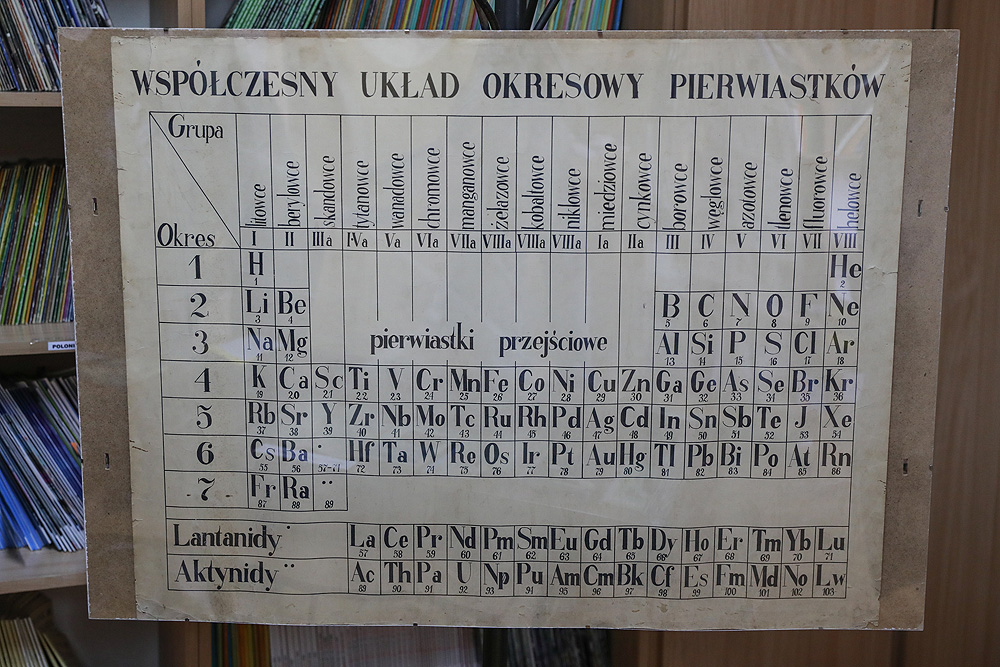 WSPÓŁCZESNY UKŁAD OKRESOWY PIERWIASTKÓW
Grupa litowce berylowce skandowce tytanowce wanadowce chromowce manganowce żelazowce kobaltowce niklowce miedziowce cynkowce borowce węglowce azotowce tlenowce fluorowce helowce
Okres I II IIIa IVa Va VIa VIIa VIIIa VIIIa VIIIa Ia IIa III IV V VI VII VIII
1 H He
1 2
2 Li Be B C N O F Ne
3 4 5 6 7 8 9 10
3 Na Mg pierwiastki przejściowe Al Si P S Cl Ar
11 12 13 14 15 16 17 18
4 K Ca Sc Ti V Cr Mn Fe Co Ni Cu Zn Ga Ge As Se Br Kr
19 20 21 22 23 24 25 26 27 28 29 30 31 32 33 34 35 36
5 Rb Sr Y Zr Nb Mo Tc Ru Rh Pd Ag Cd In Sn Sb Te J Xe
37 38 39 40 41 42 43 44 45 46 47 48 49 50 51 52 53 54
6 Cs Ba Hf Ta W Re Os Ir Pt Au Hg Tl Pb Bi Po At Rn
55 56 57-71 72 73 74 75 76 77 78 79 80 81 82 83 84 85 86
7 Fr Ra
87 88 89
Lantanidy La Ce Pr Nd Pm Sm Eu Gd Tb Dy Ho Er Tm Yb Lu
57 58 59 60 61 62 63 64 65 66 67 68 69 70 71
Aktynidy Ac Th Pa U Np Pu Am Cm Bk Cf Es Fm Md No Lw
89 90 91 92 93 94 95 96 97 98 99 100 101 102 103